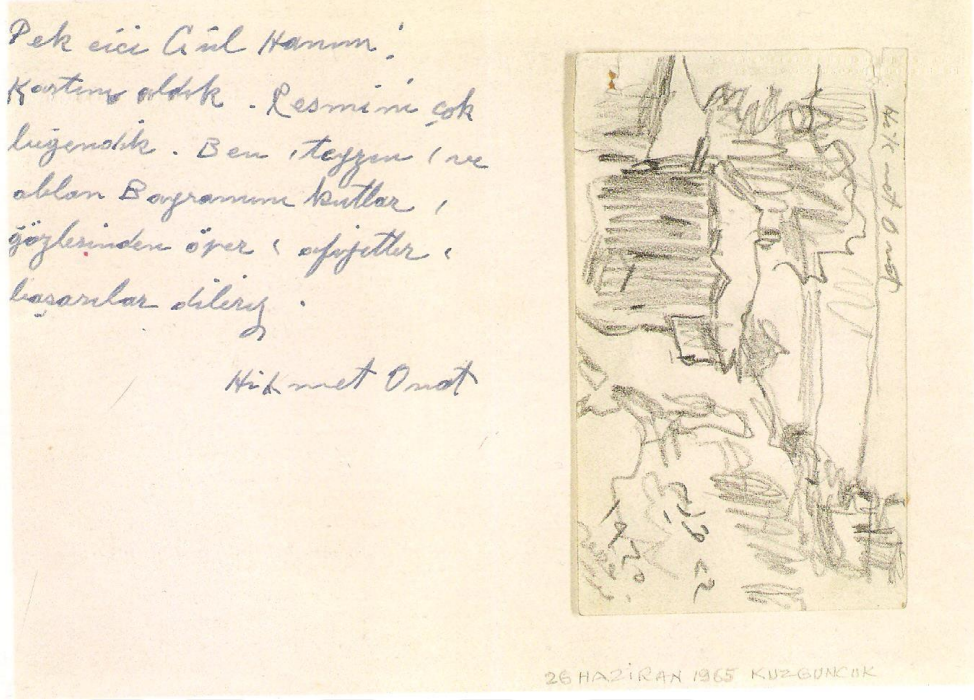 Pek cici Gül Hanım!
Kartını aldık. Resmini çok
beğendik. Ben, teyzen, ve
ablan Bayramını kutlar,
gözlerinden öper, afiyetler,
başarılar dileriz.
Hikmet Onat
Hikmet Onat
26 HAZİRAN 1965 KUZGUNCUK